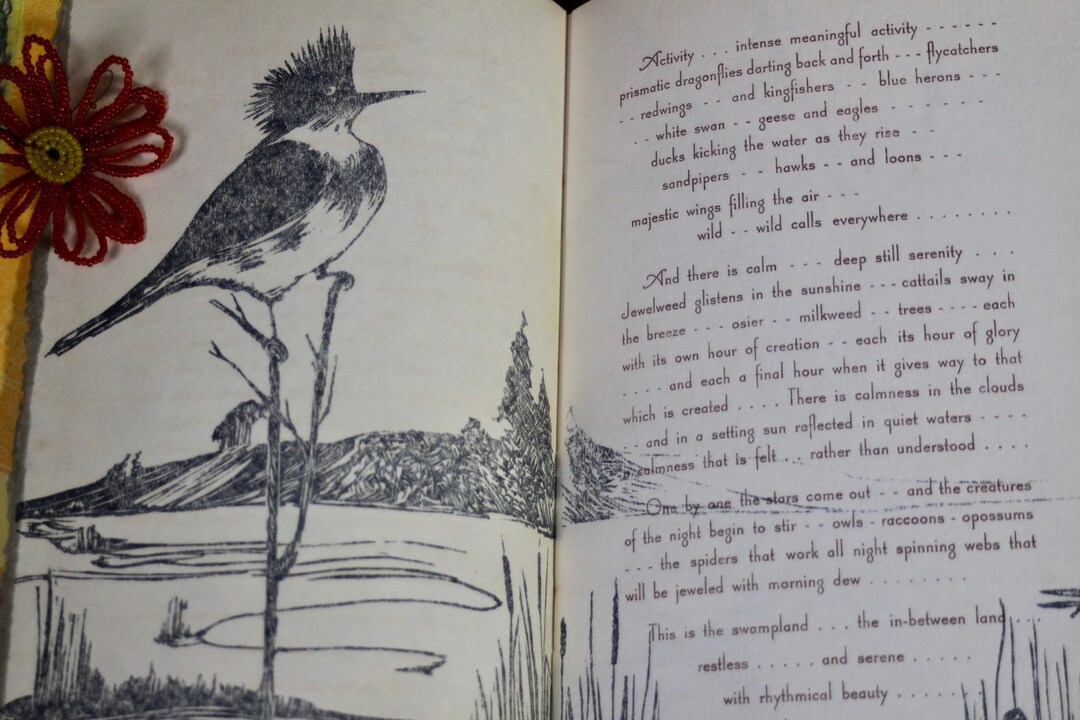 Activity . . . intense meaningful activity - - - - - -
prismatic dragonflies darting back and forth - - - flycatchers
- - redwings - - and kingfishers - - blue herons - - -
- - white swan - - geese and eagles - - - - - - -
ducks kicking the water as they rise - -
sandpipers - - hawks - - and loons - - -
majestic wings filling the air - - -
wild - - wild calls everywhere . . . . . . . .
And there is calm - - - deep still serenity . . .
Jewelweed glistens in the sunshine - - - cattails sway in
the breeze - - - osier - - milkweed - - trees - - - - each
with its own hour of creation - - each its hour of glory
- - - - and each a final hour when it gives way to that
which is created . . . . There is calmness in the clouds
- - and in a setting sun reflected in quiet waters - - - -
a calmness that is felt . . . rather than understood . . . .
One by one the stars come out - - - and the creatures
of the night begin to stir - - owls - raccoons - opossums
- - - the spiders that work all night spinning webs that
will be jeweled with morning dew . . . . . . . .
This is the swampland . . . the in-between land . . .
restless . . . . . and serene . . . . .
with rhythmical beauty . . . . . . .